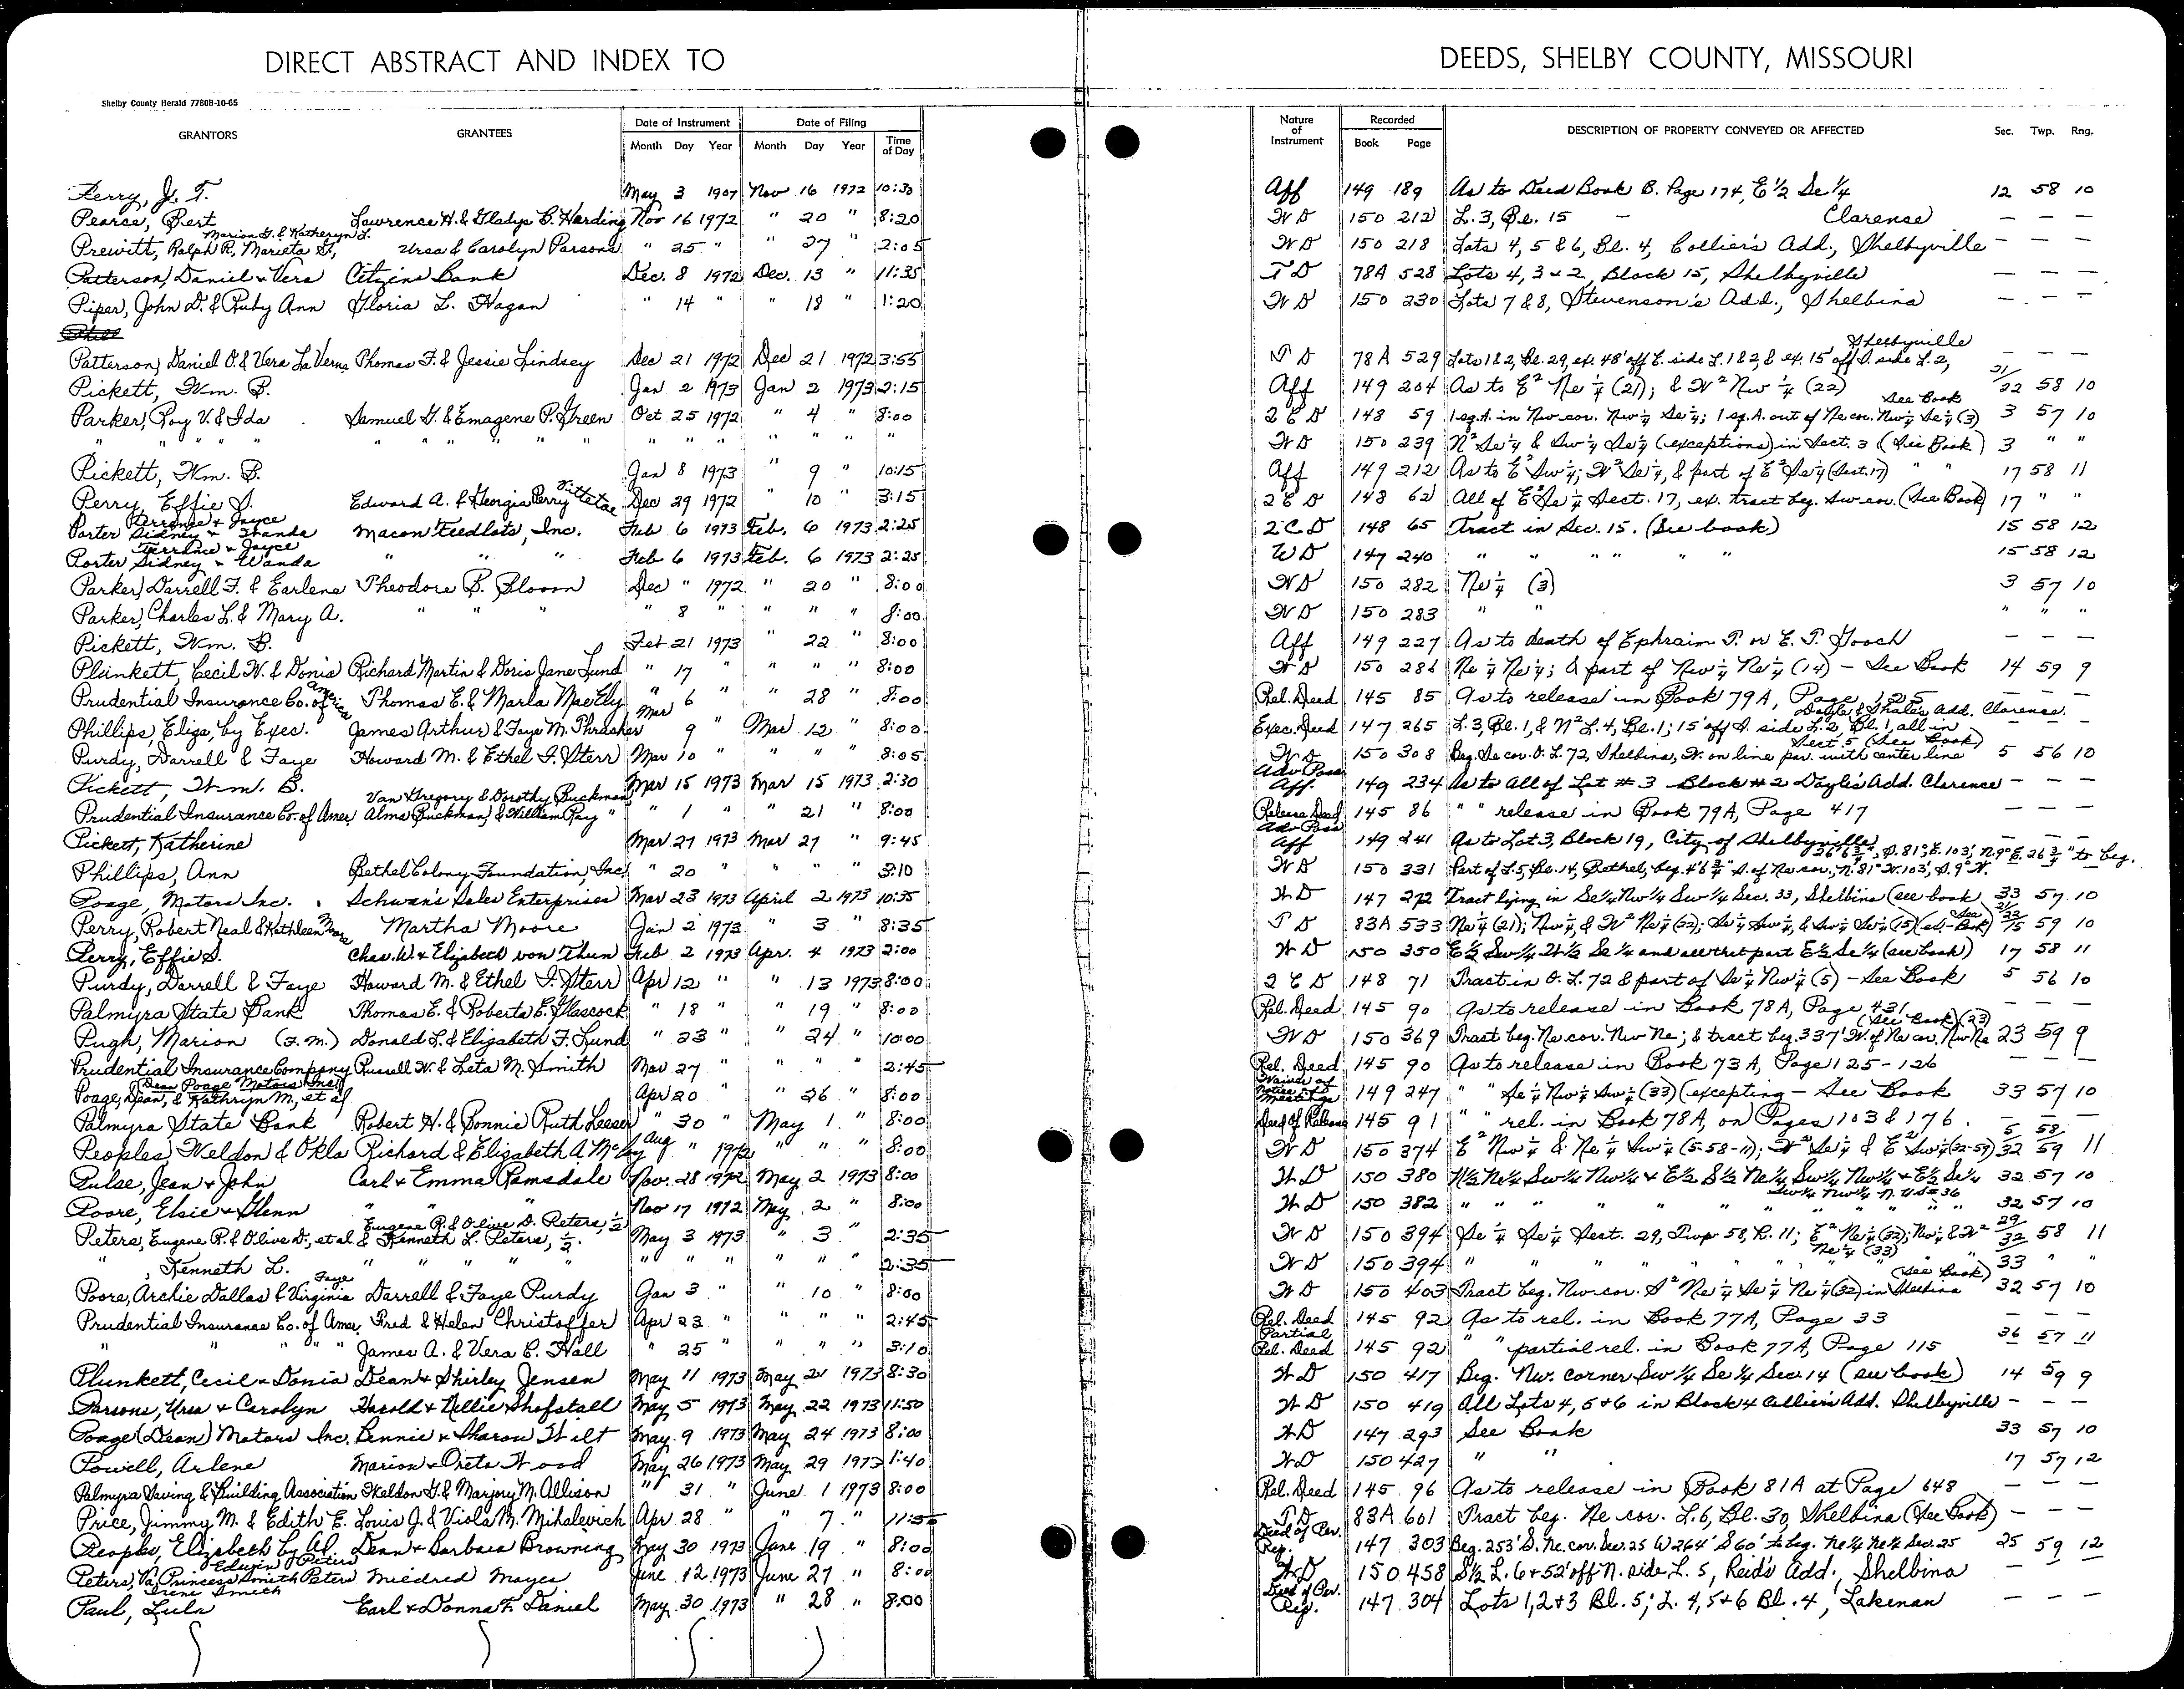 DIRECT ABSTRACT AND INDEX TO DEEDS, SHELBY COUNTY, MISSOURI
Shelby County Herald 7780B-10-65
GRANTORS GRANTEES Date of Instrument Month Day Year Date of Filing Month Day Year Time of Day Nature of Instrument Recorded Book Page DESCRIPTION OF PROPERTY CONVEYED OR AFFECTED Sec. Twp. Rng.
Perry, J. T. May 3 1907 Nov 16 1972 10:30 Aff 149 189 As to Deed Book B. Page 174, E 1/2 Se 1/4 12 58 10
Pearce, Bert Lawrence H. & Gladys C. Harding Nov 16 1972 " 20 " 8:20 WD 150 212 L. 3, Bl. 15 — Clarence — — —
Prewitt, Ralph R., Marieta F., Marion G. & Katheryn L. Ursa & Carolyn Parsons " 25 " " 27 " 2:05 WD 150 218 Lots 4, 5 & 6, Bl. 4, Collier's Add., Shelbyville — — —
Patterson, Daniel & Vera Citizens Bank Dec. 8 1972 Dec. 13 " 11:35 TD 78A 528 Lots 4, 3 & 2, Block 15, Shelbyville — — —
Piper, John D. & Ruby Ann Gloria L. Hagan " 14 " " 18 " 1:20 WD 150 230 Lots 7 & 8, Stevenson's Add., Shelbina — — —
Patterson, Daniel O. & Vera LaVerne Thomas F. & Jessie Lindsey Dec 21 1972 Dec 21 1972 3:55 TD 78A 529 Lots 1 & 2, Bl. 29, ex. 48' off E. side L. 1 & 2, & ex. 15' off S. side L. 2, Shelbyville — — —
Pickett, Wm. B. Jan 2 1973 Jan 2 1973 2:15 Aff 149 204 As to E² Ne 1/4 (21); & W² Nw 1/4 (22) 21/22 58 10
Parker, Roy V. & Ida Samuel G. & Emagene P. Green Oct 25 1972 " 4 " 8:00 2 C D 148 59 1 sq. A. in Nw cor. Nw 1/4 Se 1/4; 1 sq. A. out of Ne cor. Nw 1/4 Se 1/4 (3) See Book 3 57 10
" " " " " " " " " " " " " " " " WD 150 239 N² Se 1/4 & Sw 1/4 Se 1/4 (exceptions) in Sect. 3 (See Book) 3 " "
Pickett, Wm. B. Jan 8 1973 " 9 " 10:15 Aff 149 212 As to E² Sw 1/4; W² Se 1/4, & part of E² Se 1/4 (Sect. 17) " " 17 58 11
Perry, Effie S. Edward A. & Georgia Perry Vittetoe Dec 29 1972 " 10 " 3:15 2 C D 148 62 All of E² Se 1/4 Sect. 17, ex. tract beg. Sw cor. (See Book) 17 " "
Porter Terrance & Joyce Sidney & Wanda Macon Feedlots, Inc. Feb 6 1973 Feb. 6 1973 2:25 2 C D 148 65 Tract in Sec. 15. (See book) 15 58 12
Porter Terrance & Joyce Sidney & Wanda " " " Feb 6 1973 Feb. 6 1973 2:25 WD 147 240 " " " " " " 15 58 12
Parker, Darrell F. & Earlene Theodore B. Bloom Dec " 1972 " 20 " 8:00 WD 150 282 Ne 1/4 (3) 3 57 10
Parker, Charles L. & Mary A. " " " " 8 " " " " 8:00 WD 150 283 " " " " "
Pickett, Wm. B. Feb 21 1973 " 22 " 8:00 Aff 149 227 As to death of Ephraim P. or E. P. Gooch — — —
Plunkett, Cecil W. & Donia Richard Martin & Doris Jane Lund " 17 " " " " 8:00 WD 150 286 Ne 1/4 Ne 1/4; & part of Nw 1/4 Ne 1/4 (14) — See Book 14 59 9
Prudential Insurance Co. of America Thomas E. & Marla Mae Ely " 6 " " 28 " 8:00 Rel. Deed 145 85 As to release in Book 79A, Page 125 — — —
Phillips, Eliza, by Exec. James Arthur & Faye M. Thrasher Mar 9 " Mar 12 " 8:00 Exec. Deed 147 265 L. 3, Bl. 1, & N² L. 4, Bl. 1; 15' off S. side L. 2, Bl. 1, all in Doyle & Thale's Add. Clarence. — —
Purdy, Darrell & Faye Howard M. & Ethel I. Sterr Mar 10 " " " " 8:05 WD 150 308 Beg. Se cor. O. L. 72, Shelbina, W. on line par. with center line Sect. 5 (See Book) 5 56 10
Pickett, Wm. B. Mar 15 1973 Mar 15 1973 2:30 Adv Poss Aff. 149 234 As to All of Lot #3 Block #2 Doyle's Add. Clarence — — —
Prudential Insurance Co. of Amer. Van Gregory & Dorothy Buckman, Alma Buckman, & William Ray " " 1 " " 21 " 8:00 Release Deed 145 86 " " release in Book 79A, Page 417 — — —
Pickett, Katherine Mar 27 1973 Mar 27 " 9:45 Adv Poss Aff 149 241 As to Lot 3, Block 19, City of Shelbyville — — —
Phillips, Ann Bethel Colony Foundation, Inc. " 20 " " " " 3:10 WD 150 331 Part of L. 5, Bl. 14, Bethel, beg. 46' 6 3/4" S. of Ne cor., N. 81° W. 103', S. 9° W. 26' 6 3/4", S. 81° E. 103', N. 9° E. 26 3/4" to beg.
Poage, Motors Inc. Schwan's Sales Enterprises Mar 23 1973 April 2 1973 10:35 WD 147 272 Tract lying in Se 1/4 Nw 1/4 Sw 1/4 Sec. 33, Shelbina (see book) 33 57 10
Perry, Robert Neal & Kathleen Martha Moore Jan 2 1973 " 3 " 8:35 TD 83A 533 Ne 1/4 (21); Nw 1/4, & W² Ne 1/4 (22); Se 1/4 Sw 1/4, & Sw 1/4 Se 1/4 (15) (ex. — See Book) 21/22/15 59 10
Perry, Effie S. Chas. W. & Elizabeth von Thun Feb 2 1973 Apr. 4 1973 2:00 WD 150 350 E 1/2 Sw 1/4, W 1/2 Se 1/4 and all that part E 1/2 Se 1/4 (see book) 17 58 11
Purdy, Darrell & Faye Howard M. & Ethel I. Sterr Apr 12 " " 13 1973 8:00 2 C D 148 71 Tract in O. L. 72 & part of Se 1/4 Nw 1/4 (5) — See Book 5 56 10
Palmyra State Bank Thomas E. & Roberta E. Glascock " 18 " " 19 " 8:00 Rel. Deed 145 90 As to release in Book 78A, Page 431 — — —
Pugh, Marion (F. M.) Donald L. & Elizabeth F. Lund " 23 " " 24 " 10:00 WD 150 369 Tract beg. Ne cor. Nw Ne; & tract beg. 337' W. of Ne cor. Nw Ne (See Book) (23) 23 59 9
Prudential Insurance Company Russell W. & Leta M. Smith Mar 27 " " " " 2:45 Rel. Deed 145 90 As to release in Book 73A, Page 125-126 — — —
Poage, Dean, & Kathryn M., et al Dean Poage Motors Inc. Apr 20 " 26 " 8:00 Waiver of Notice of Meetings 149 247 " " Se 1/4 Nw 1/4 Sw 1/4 (33) (excepting — See Book 33 57 10
Palmyra State Bank Robert H. & Bonnie Ruth Leeser " 30 " May 1 " 8:00 Deed of Release 145 91 " " rel. in Book 78A, on Pages 103 & 176 — — —
Peoples, Weldon & Okla Richard & Elizabeth A. McCoy Aug " 1972 " " " 8:00 WD 150 374 E² Nw 1/4 & Ne 1/4 Sw 1/4 (5-58-11); W² Se 1/4 & E² Sw 1/4 (32-59) 5/32 58/59 11
Pulse, Jean & John Carl & Emma Ramsdale Nov. 28 1972 May 2 1973 8:00 WD 150 380 N 1/2 Ne 1/4 Sw 1/4 Nw 1/4 & E 1/2 S 1/2 Ne 1/4 Sw 1/4 Nw 1/4 & E 1/2 Se 1/4 Sw 1/4 Nw 1/4 32 57 10
Poore, Elsie & Glenn " " Nov 17 1972 May 2 " 8:00 WD 150 382 " " " " " " " " " 32 57 10
Peters, Eugene R. & Olive D., et al Eugene R. & Olive D. Peters, 1/2 & Kenneth L. Peters, 1/2 May 3 1973 " 3 " 2:35 WD 150 394 Se 1/4 Se 1/4 Sect. 29, Twp 58, R. 11; E² Ne 1/4 (32); Nw 1/4 & W² Ne 1/4 (33) 29/32 58 11
" , Kenneth L. " " " " " " " " " " 2:35 WD 150 394 " " " " " " 33 " "
Poore, Archie Dallas & Virginia Faye Darrell & Faye Purdy Jan 3 " " 10 " 8:00 WD 150 403 Tract beg. Nw cor. S² Ne 1/4 Se 1/4 Ne 1/4 (32) in Shelbina (See Book) 32 57 10
Prudential Insurance Co. of Amer. Fred & Helen Christoffer Apr 23 " " " " 2:45 Rel. Deed 145 92 As to rel. in Book 77A, Page 33 — — —
" " " " James A. & Vera C. Hall " 25 " " " " 3:10 Partial Rel. Deed 145 92 " " partial rel. in Book 77A, Page 115 36 57 11
Plunkett, Cecil & Donia Dean & Shirley Jensen May 11 1973 May 21 1973 8:30 WD 150 417 Beg. Nw. corner Sw 1/4 Se 1/4 Sec. 14 (see book) 14 59 9
Parsons, Ursa & Carolyn Harold & Nellie Shofstall May 5 1973 May 22 1973 11:50 WD 150 419 All Lots 4, 5 & 6 in Block 4 Collier's Add. Shelbyville — — —
Poage (Dean) Motors Inc. Bennie & Sharon Wilt May 9 1973 May 24 1973 8:00 WD 147 293 See Book 33 57 10
Powell, Arlene Marion & Oreta Wood May 26 1973 May 29 1973 1:40 WD 150 427 " " 17 57 12
Palmyra Saving & Building Association Weldon G. & Marjory M. Allison " 31 " June 1 1973 8:00 Rel. Deed 145 96 As to release in Book 81A at Page 648 — — —
Price, Jimmy M. & Edith E. Louis J. & Viola M. Mihalevich Apr 28 " " 7 " 11:55 TD 83A 601 Tract beg. Ne cor. L. 6, Bl. 30, Shelbina (See Book) — — —
Peoples, Elizabeth by Al. Dean & Barbara Browning May 30 1973 June 19 " 8:00 Deed of Per. Rep. 147 303 Beg. 253' S. Ne. cor. Sec. 25 W 264' S 60' to beg. Ne 1/4 Ne 1/4 Sec. 25 25 59 12
Peters, Va, Princess Smith Peters Edwin Peters Irene Smith Mildred Mayes June 12 1973 June 27 " 8:00 WD 150 458 S 1/2 L. 6 & 52' off N. side L. 5, Reid's Add., Shelbina
Paul, Lula Earl & Donna F. Daniel May 30 1973 " 28 " 8:00 Deed of Per. Rep. 147 304 Lots 1, 2 & 3 Bl. 5; L. 4, 5 & 6 Bl. 4, Lakenan — — —